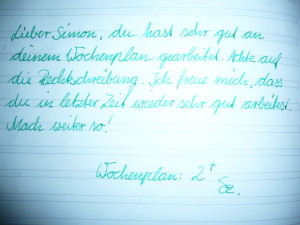 Lieber Simon, du hast sehr gut an
deinem Wochenplan gearbeitet. Achte auf
die Rechtschreibung. Ich freue mich, dass
du in letzter Zeit wieder sehr gut arbeitest.
Mach weiter so!
Wochenplan: 2+